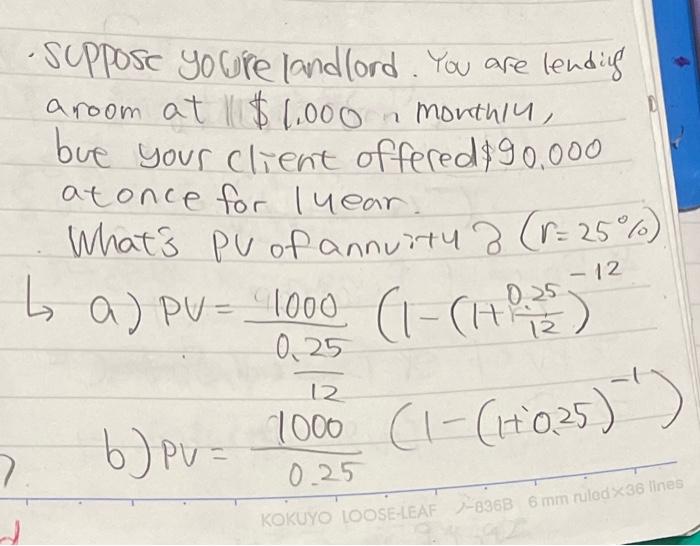 · suppose you're landlord. You are lendig
a room at $1.000 monthly,
but your client offered $90.000
at once for 1 year.
What's PV of annuity? (r=25%)
↳ a) PV = 1000 / (0.25/12) (1-(1+0.25/12)^-12
b) PV = 1000 / 0.25 (1-(1+0.25)^-1)
KOKUYO LOOSE-LEAF ノ-836B 6 mm ruled×36 lines